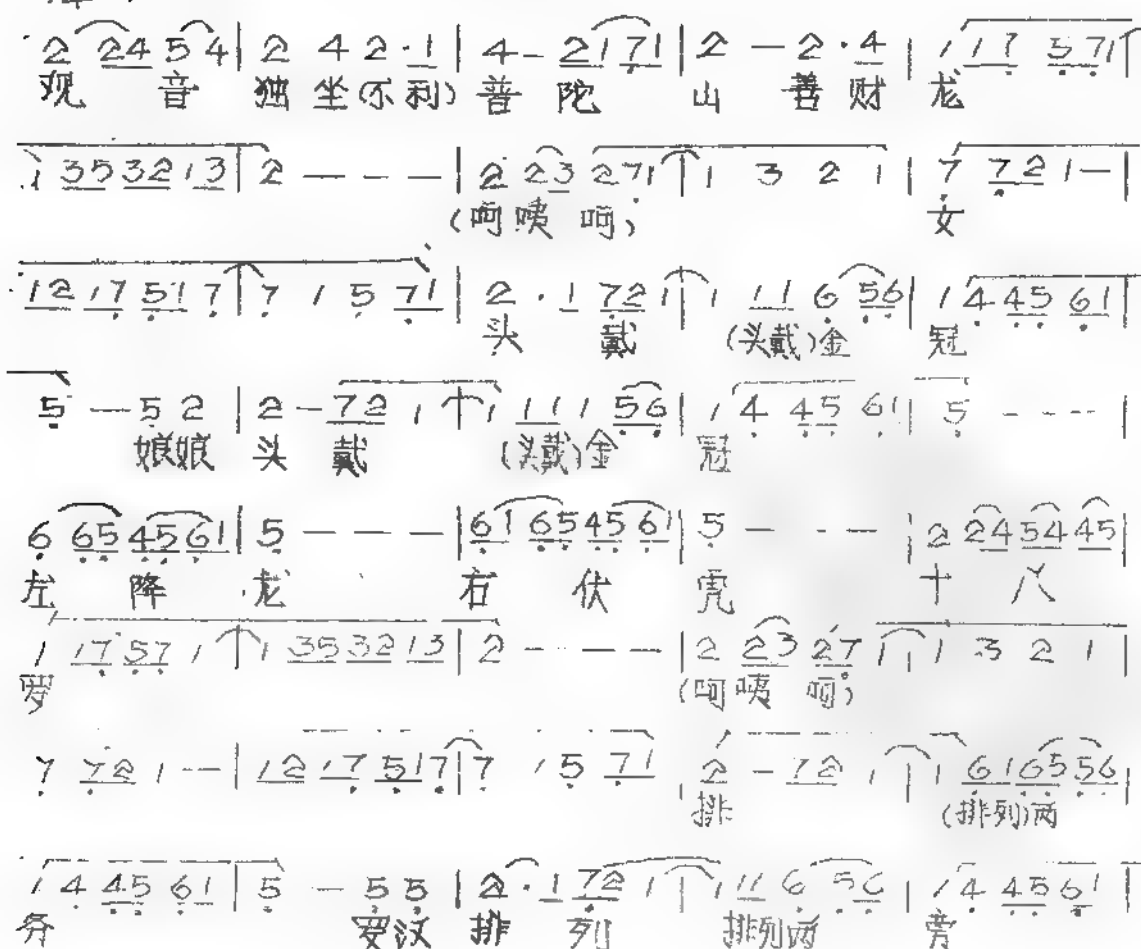 2 24 5 4 | 2 4 2·1 | 4 - 2171 | 2 - 2·4 | 1 17 571
观 音 独 坐(不利) 普 陀 山 善 财 龙
1 353213 | 2 - - - | 2 23 271 | 1 3 2 1 | 7 72 1 -
(呵 咦 呵) 女
12 17 517 | 7 1 5 71 | 2·1 72 1 | 1 11 6 56 | 1 4 45 61 |
头 戴 (头戴)金 冠
5 - 5 2 | 2 - 72 1 | 1 11 1 56 | 1 4 45 61 | 5 - - -
娘娘 头 戴 (头戴)金 冠
6 65 4561 | 5 - - - | 61 65 45 61 | 5 - - - | 2 24 54 45 |
左 降 龙 右 伏 虎 十 八
1 17 57 1 | 1 353213 | 2 - - - | 2 23 27 1 | 1 3 2 1 |
罗 (呵 咦 呵)
7 72 1 - - | 12 17 517 | 7 1 5 71 | 2 - 72 1 | 1 616556 |
排 (排列)两
1 4 45 61 | 5 - 5 5 | 2·1 72 1 | 1 11 6 56 | 1 4 45 61 |
旁 罗汉 排 列 排列两 旁